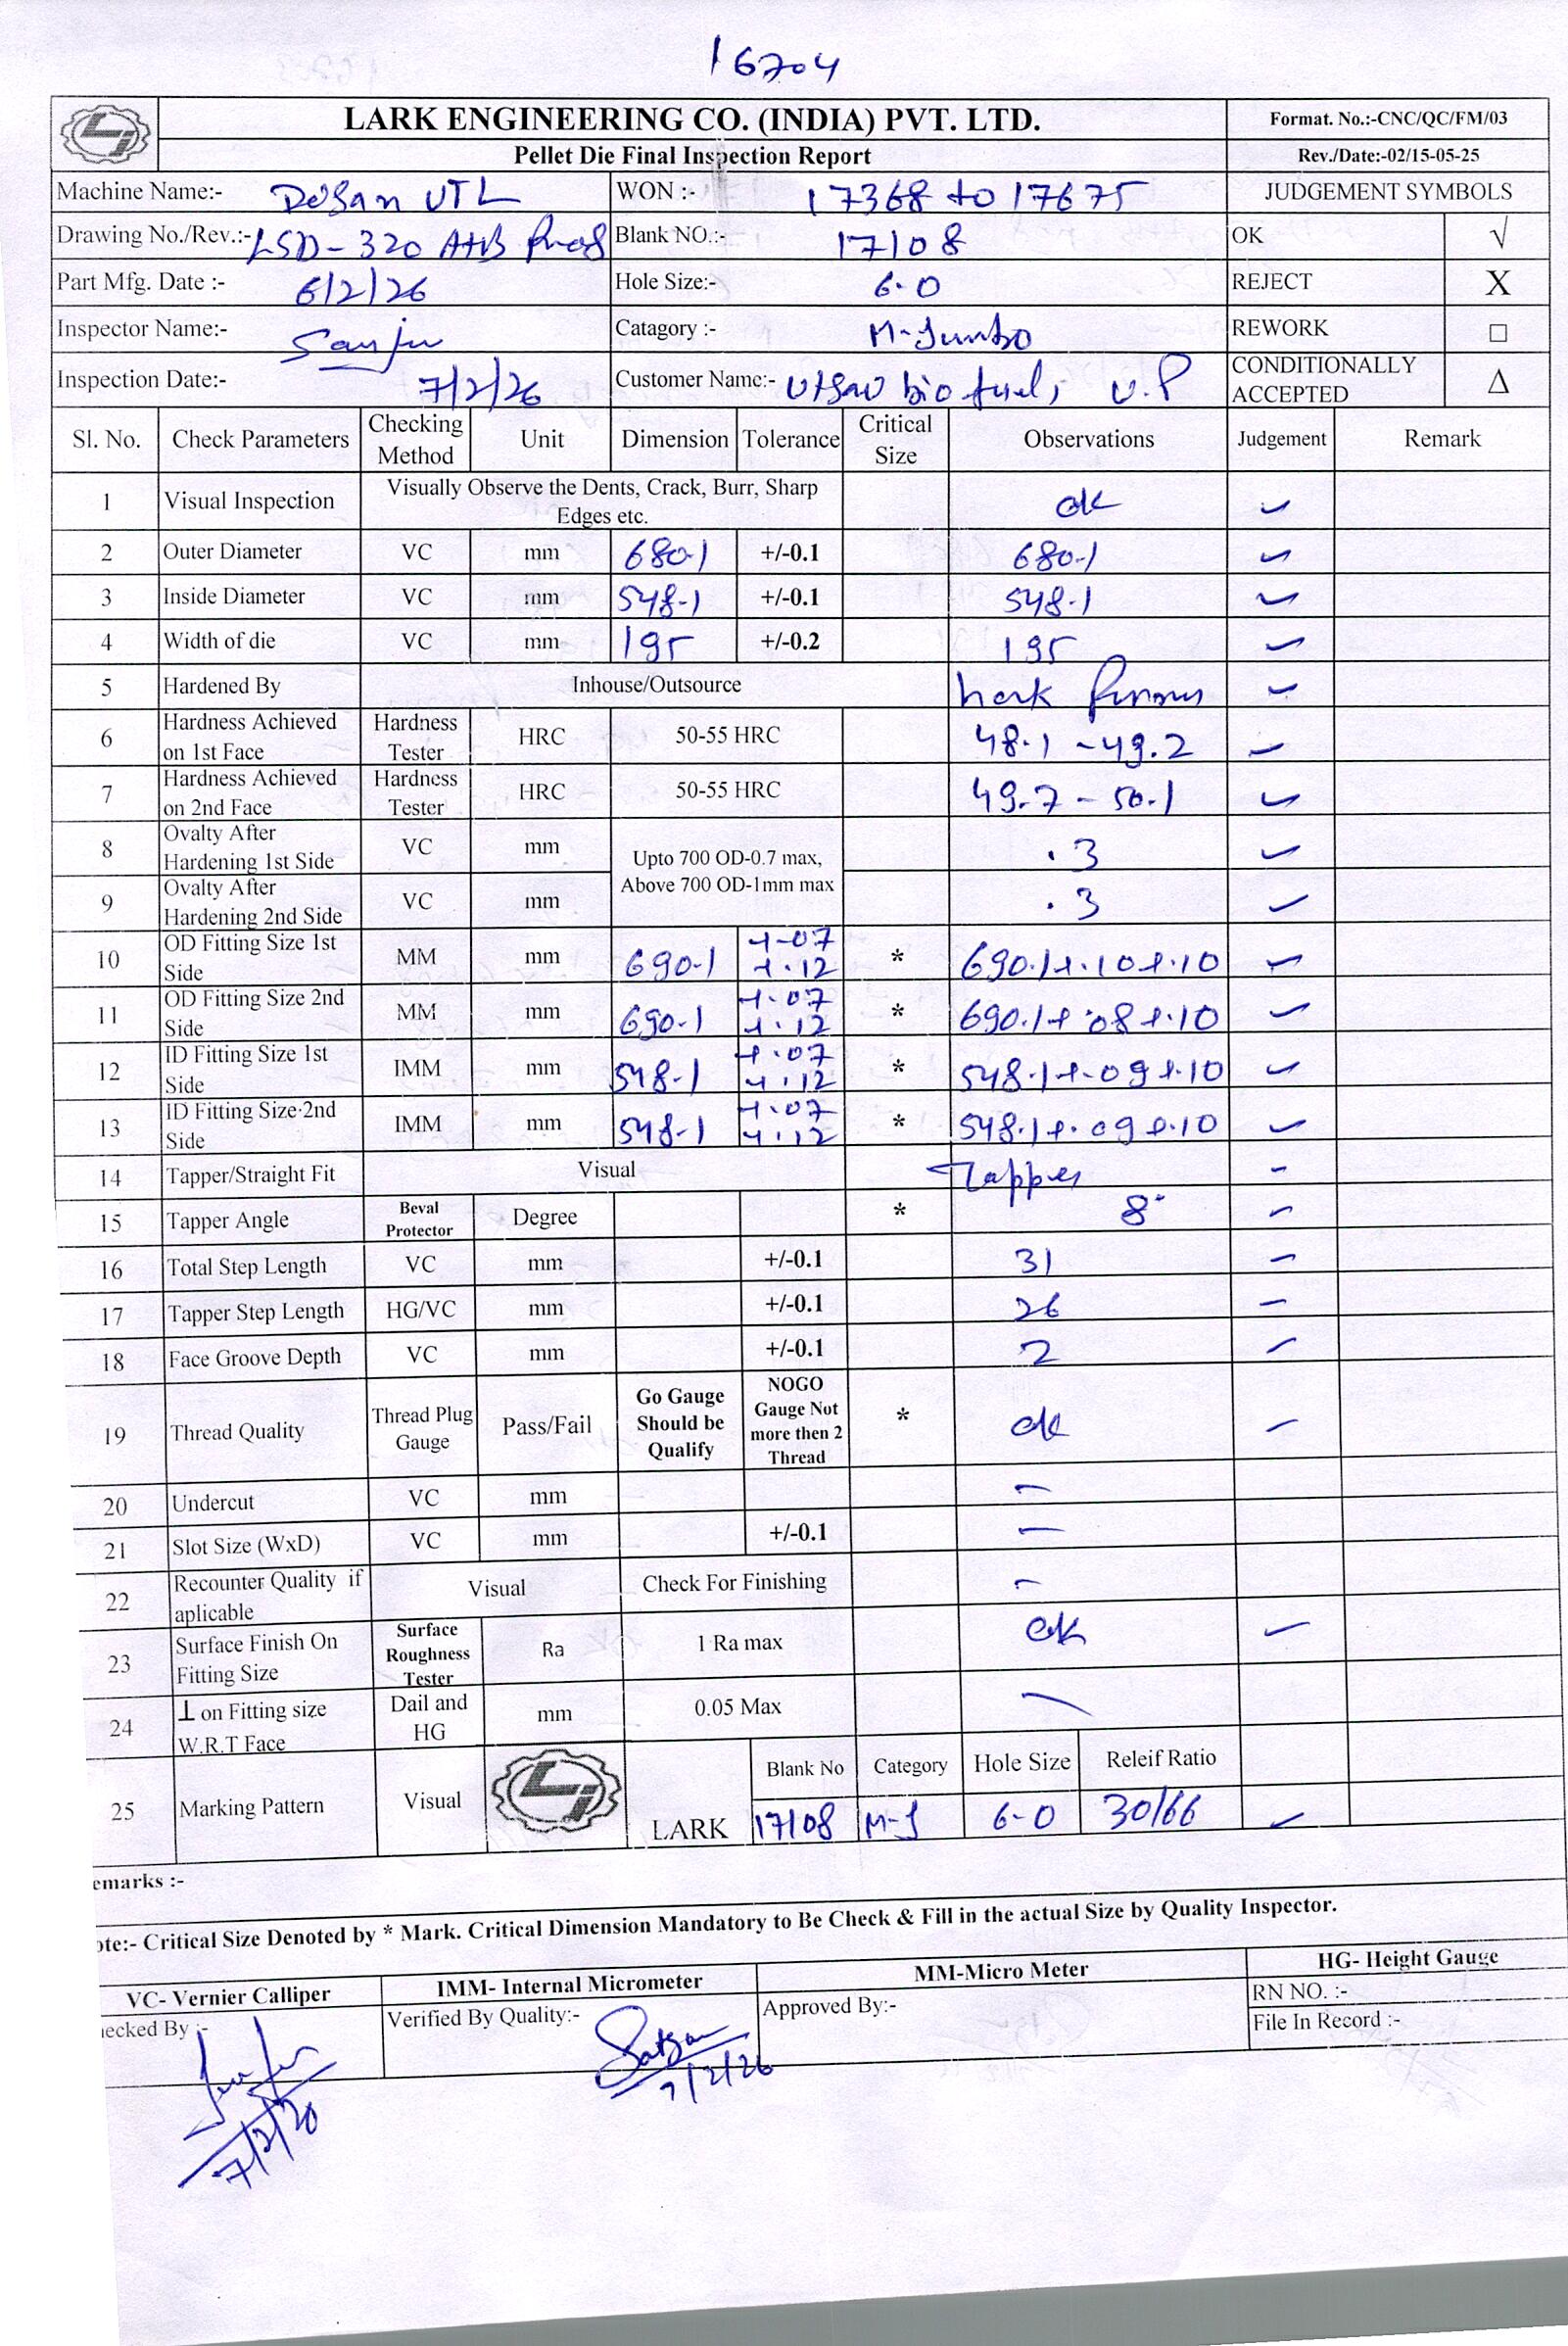 16704
LARK ENGINEERING CO. (INDIA) PVT. LTD. Format. No.:-CNC/QC/FM/03
Pellet Die Final Inspection Report Rev./Date:-02/15-05-25
Machine Name:- UTL WON :- 17368 to 17675 JUDGEMENT SYMBOLS
Drawing No./Rev.:- LSD-320 A+B Blank NO.:- 17108 OK √
Part Mfg. Date :- 6/2/26 Hole Size:- 6.0 REJECT X
Inspector Name:- Sanju Catagory :- M-Jumbo REWORK □
Inspection Date:- 7/2/26 Customer Name:- Utsav bio fuel, U.P CONDITIONALLY ACCEPTED Δ
Sl. No. Check Parameters Checking Method Unit Dimension Tolerance Critical Size Observations Judgement Remark
1 Visual Inspection Visually Observe the Dents, Crack, Burr, Sharp Edges etc. ok ✓
2 Outer Diameter VC mm 680.1 +/-0.1 680.1 ✓
3 Inside Diameter VC mm 548.1 +/-0.1 548.1 ✓
4 Width of die VC mm 195 +/-0.2 195 ✓
5 Hardened By Inhouse/Outsource ✓
6 Hardness Achieved on 1st Face Hardness Tester HRC 50-55 HRC 48.1 - 49.2 ✓
7 Hardness Achieved on 2nd Face Hardness Tester HRC 50-55 HRC 49.7 - 50.1 ✓
8 Ovalty After Hardening 1st Side VC mm Upto 700 OD-0.7 max, Above 700 OD-1mm max .3 ✓
9 Ovalty After Hardening 2nd Side VC mm .3 ✓
10 OD Fitting Size 1st Side MM mm 690.1 +.07 +.12 * 690.1+.10+.10 ✓
11 OD Fitting Size 2nd Side MM mm 690.1 +.07 +.12 * 690.1+.08+.10 ✓
12 ID Fitting Size 1st Side IMM mm 548.1 +.07 +.12 * 548.1+.09+.10 ✓
13 ID Fitting Size 2nd Side IMM mm 548.1 +.07 +.12 * 548.1+.09+.10 ✓
14 Tapper/Straight Fit Visual Tapper -
15 Tapper Angle Beval Protector Degree * 8° ✓
16 Total Step Length VC mm +/-0.1 31 ✓
17 Tapper Step Length HG/VC mm +/-0.1 26 ✓
18 Face Groove Depth VC mm +/-0.1 2 ✓
19 Thread Quality Thread Plug Gauge Pass/Fail Go Gauge Should be Qualify NOGO Gauge Not more then 2 Thread * ok ✓
20 Undercut VC mm -
21 Slot Size (WxD) VC mm +/-0.1 -
22 Recounter Quality if aplicable Visual Check For Finishing -
23 Surface Finish On Fitting Size Surface Roughness Tester Ra 1 Ra max ok ✓
24 ⊥ on Fitting size W.R.T Face Dail and HG mm 0.05 Max -
25 Marking Pattern Visual LARK Blank No Category Hole Size Releif Ratio
17108 M-J 6-0 30/66 ✓
emarks :-
ote:- Critical Size Denoted by * Mark. Critical Dimension Mandatory to Be Check & Fill in the actual Size by Quality Inspector.
VC- Vernier Calliper IMM- Internal Micrometer MM-Micro Meter HG- Height Gauge
ecked By :- Verified By Quality:- Approved By:- RN NO. :-
File In Record :-
7/2/26